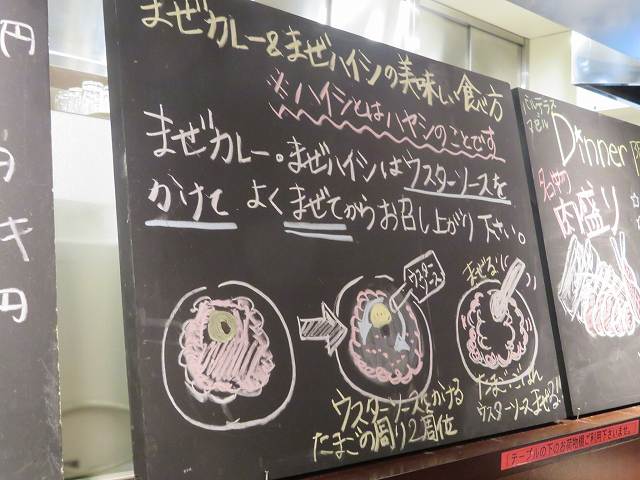 円
円
キ
円
まぜカレー&まぜハイシの美味しい食べ方
※ハイシとはハヤシのことです
まぜカレー・まぜハイシはウスターソースを
かけて よくまぜてからお召し上がり下さい。
ウスターソース
まぜる!
ウスターソースをかける
たまごの周り2周位
たまご
ウスターソースまぜる!!
バルテラス
Dinner
名物
肉盛り
テーブルの下のお荷物棚ご利用下さいませ。